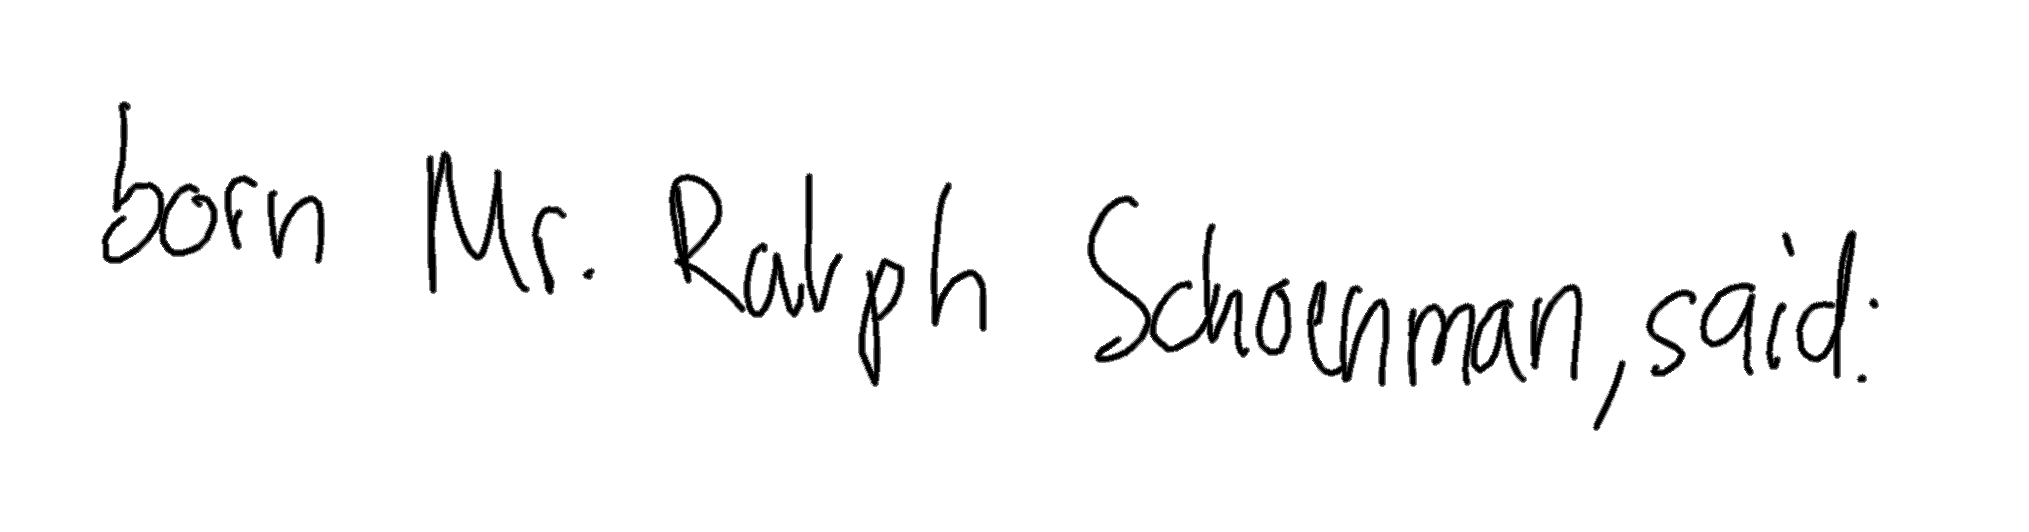 born Mr. Ralph Schoenman, said: